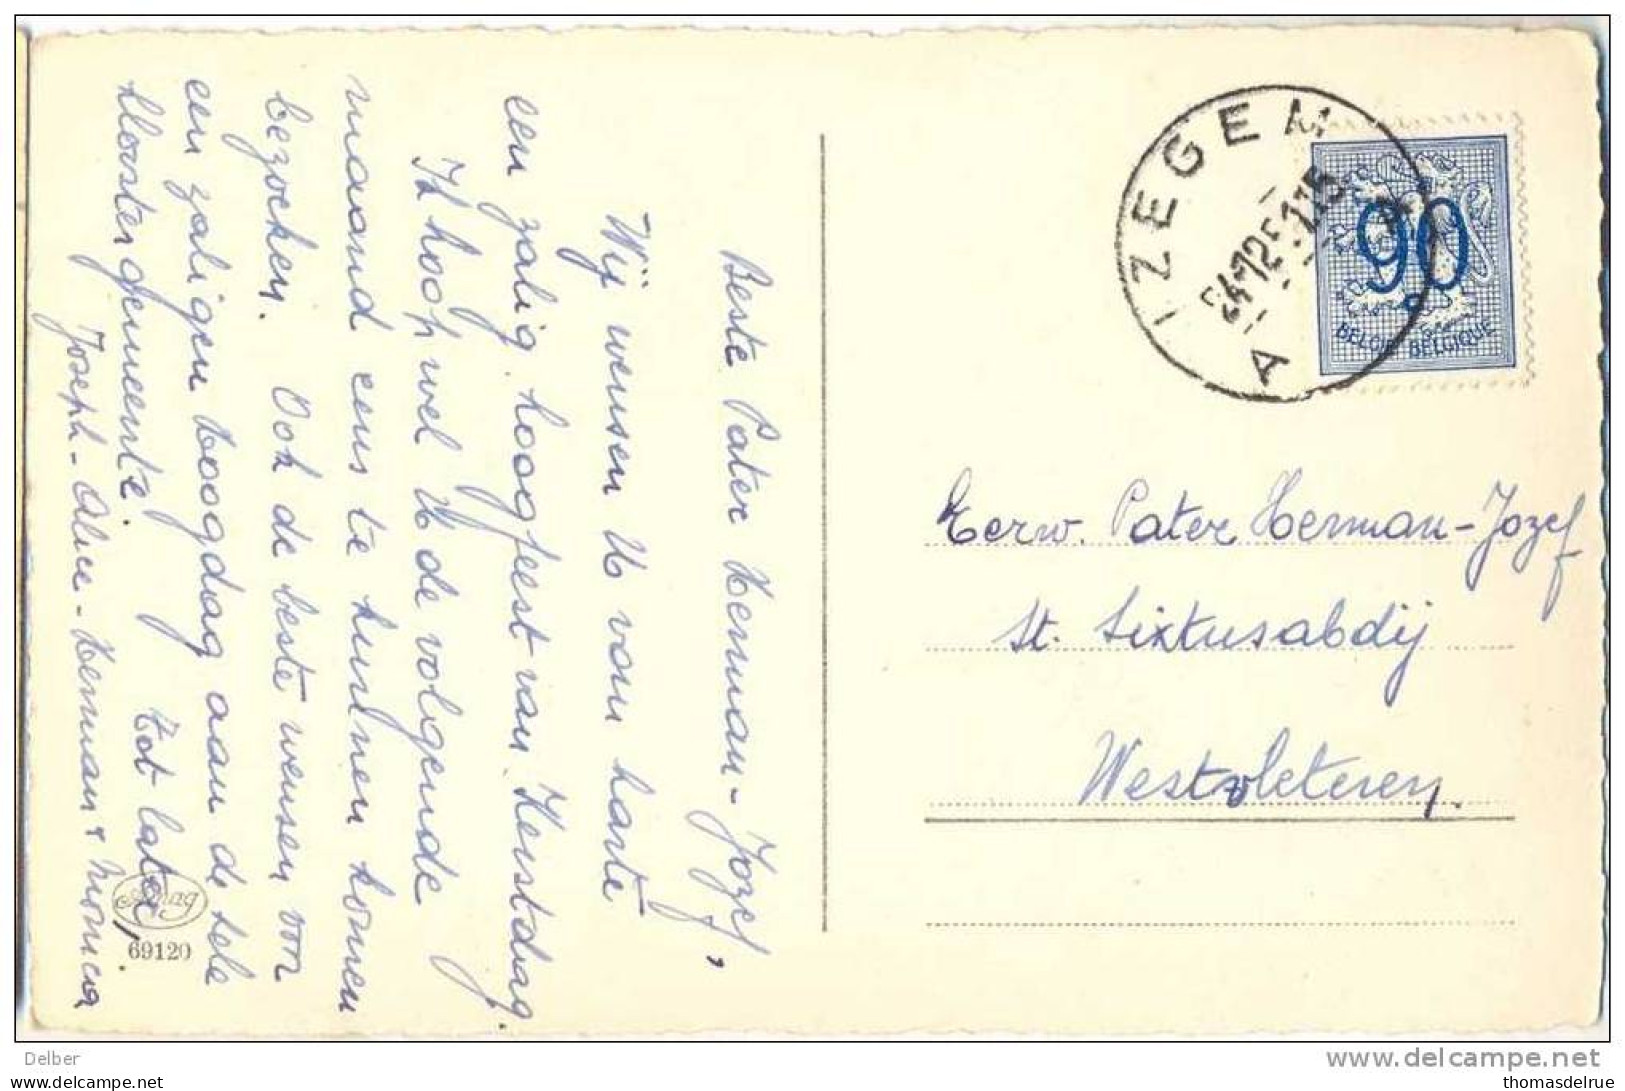 Beste Pater Herman-Jozef,
Wij wensen U van harte
een zalig hoogfeest van Kerstdag.
Ik hoop wel U de volgende
maand eens te kunnen komen
bezoeken. Ook de beste wensen voor
een zaligen hoogdag aan de hele
kloostergemeente.
Tot later,
Joseph - Aline - Herman + Monica
69120
IZEGEM
A
A
90
BELGIE BELGIQUE
Eerw. Pater Herman-Jozef
St. Sixtusabdij
Westvleteren.
Delber
www.delcampe.net
All rights reserved
thomasdelrue